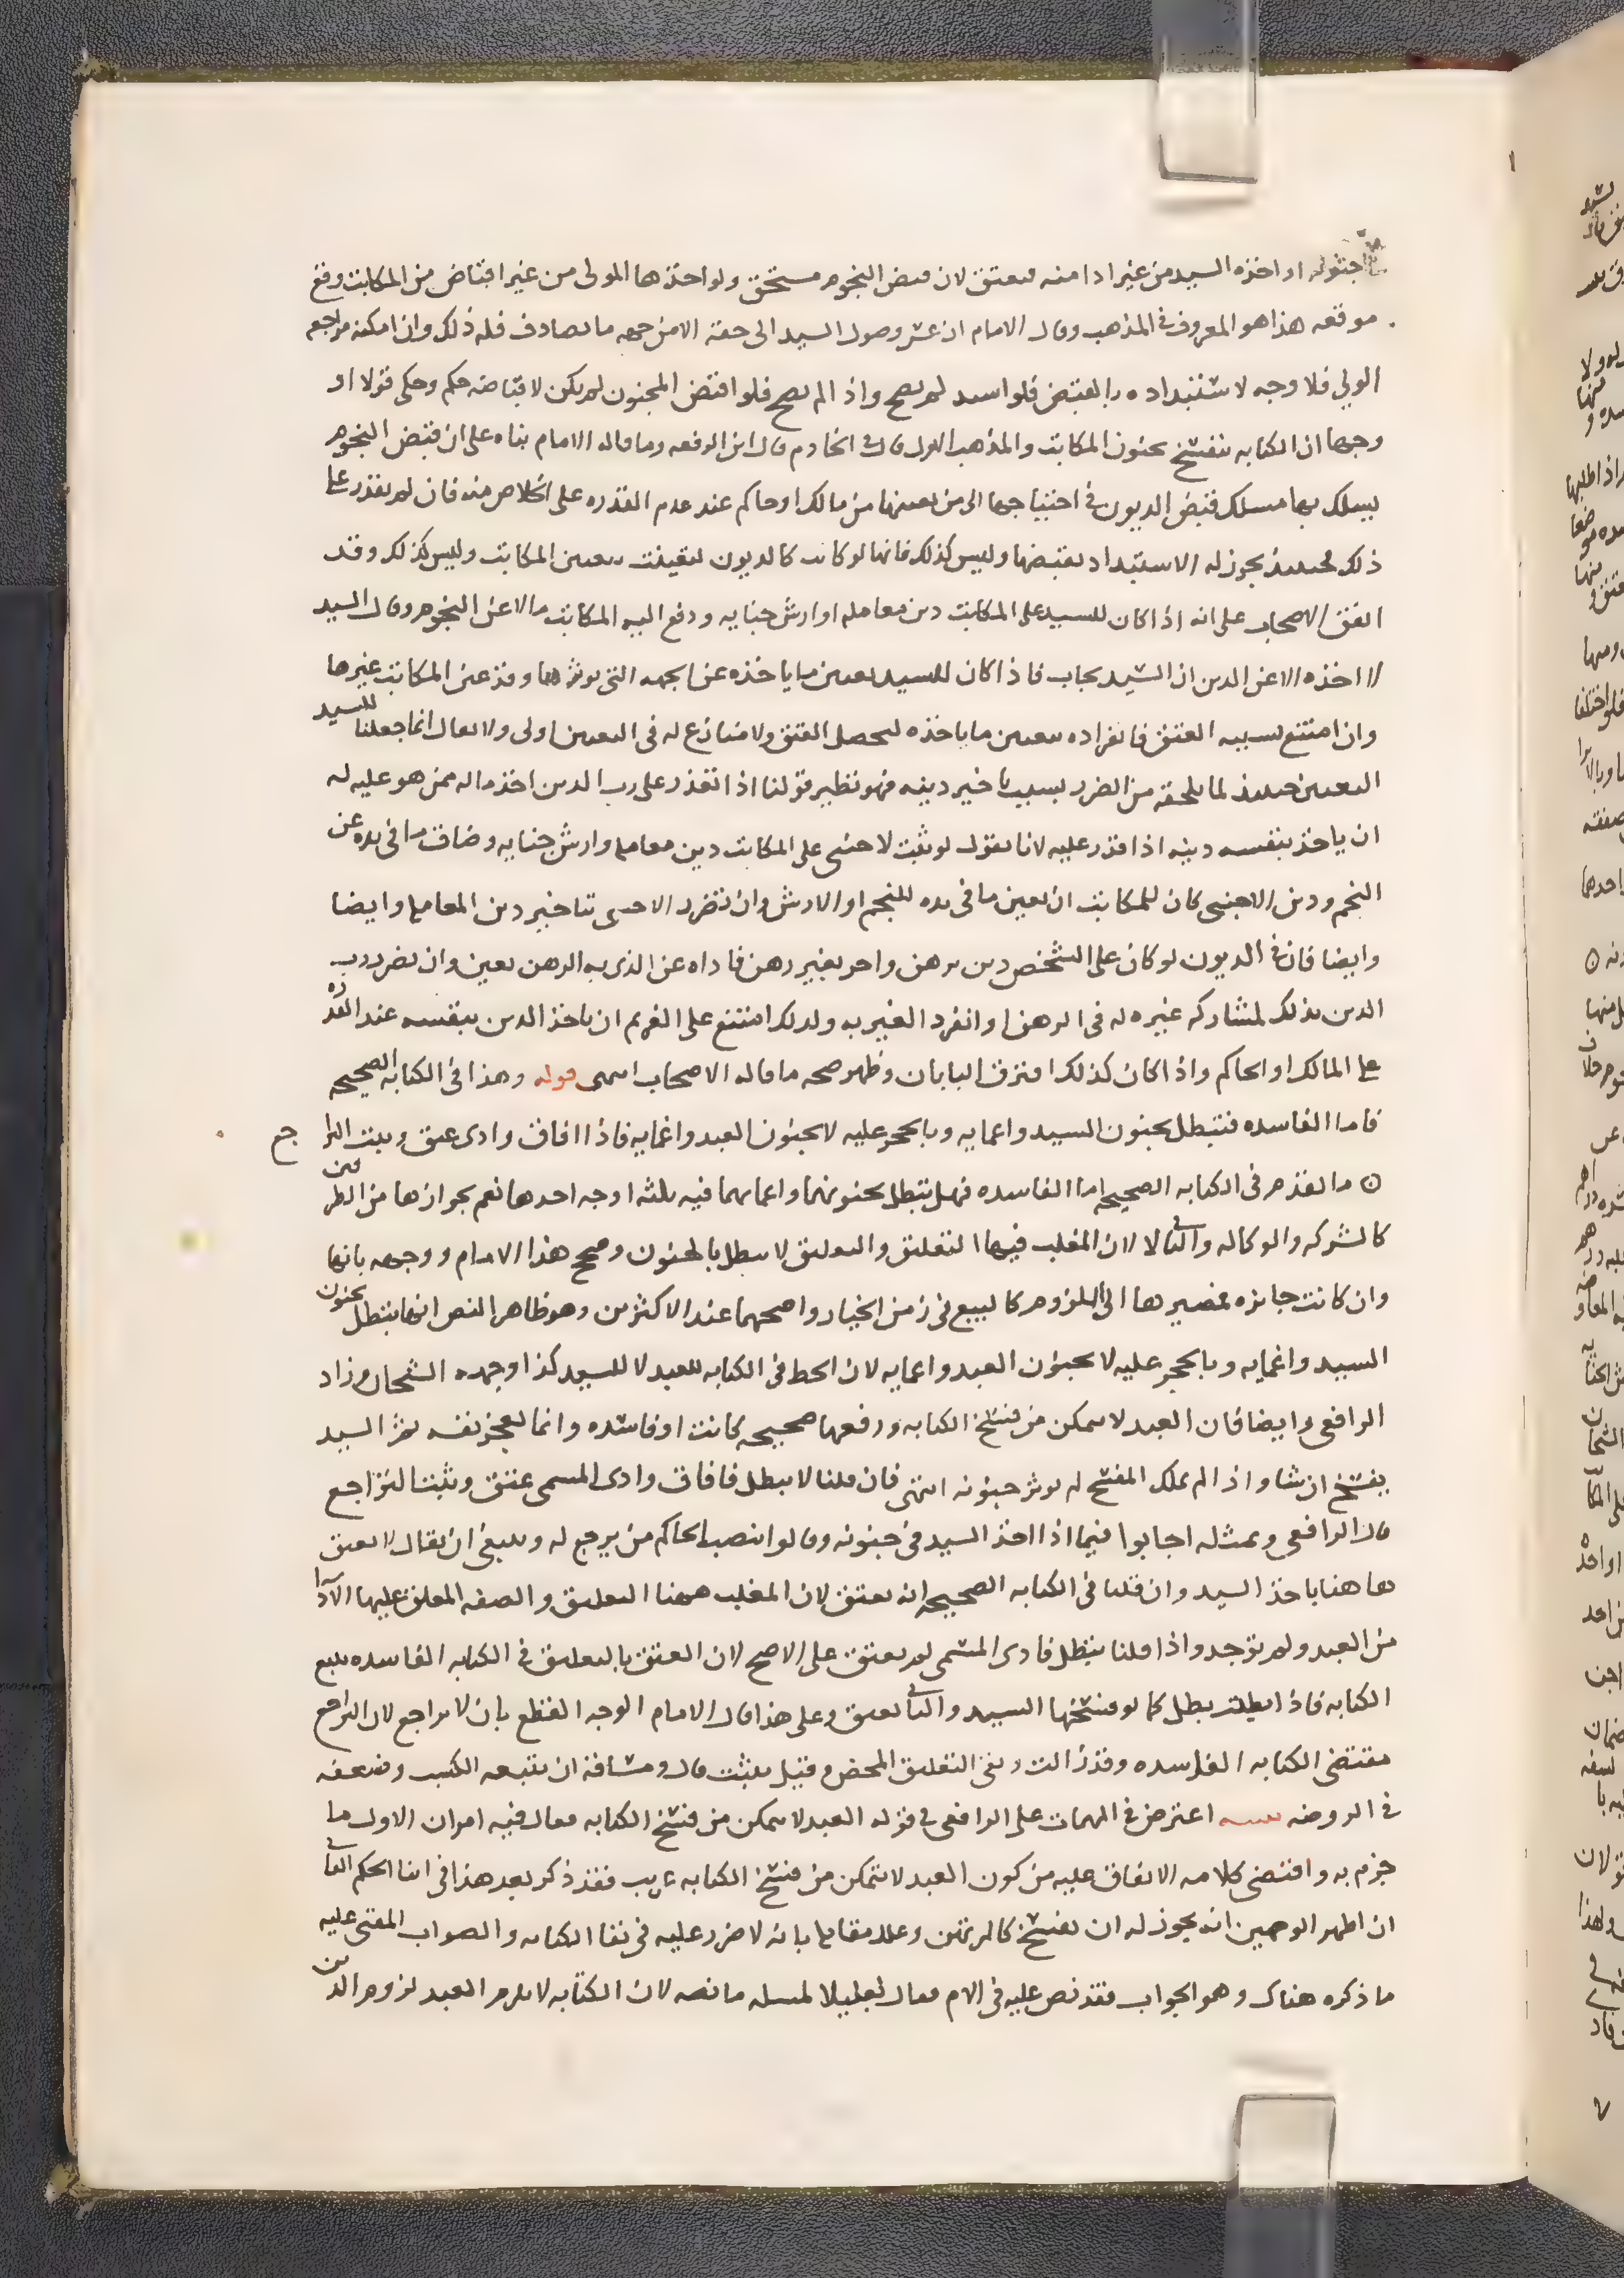 جنونه او اخذه السيد من غير ادا منه فيعتق لان قبض النجوم مستحق ولو اخذها المولى من غير اقباض من المكاتب وقع
موقعه هذا هو المعروف في المذهب وقال الامام ان عسر وصول السيد الى حقه الا من جهه ما يصادف فله ذلك وان امكنه مراجعه
الولي فلا وجه لاستبداده بالقبض فلو استبد لم يصح واذا لم يصح فلو اقبض المجنون لم يكن لاقباضه حكم وحكى قولا او
وجها ان الكتابه تنفسخ بجنون المكاتب والمذهب الاول قال في الخادم قال ابن الرفعه وما قاله الامام بناه على ان قبض النجوم
يسلك بها مسلك قبض الديون في احتياجها الى من يعينها من مالك او حاكم عند عدم القدره على الخلاص منه فان لم يقدر على
ذلك فحينئذ يجوز له الاستبداد بقبضها وليس كذلك فانها لو كانت كالديون لتعينت بتعيين المكاتب وليس كذلك وقد
اتفق الاصحاب على انه اذا كان للسيد على المكاتب دين معامله او ارش جنايه ودفع اليه المكاتب مالا عن النجوم وقال السيد
لا اخذه الا عن الدين ان السيد يجاب فاذا كان للسيد تعيين ما ياخذه عن الجهه التي يوثرها وقد عين المكاتب غيرها
وان امتنع بسببه العتق فانفراده بتعيين ما ياخذه ليحصل العتق ولا منازع له في التعيين اولى ولا يقال انما جعلنا للسيد
التعيين حينئذ لما يلحقه من الضرر بسبب تاخير دينه فهو نظير قولنا اذا تعذر على رب الدين اخذ ماله ممن هو عليه له
ان ياخذ بنفسه دينه اذا قدر عليه لانا نقول لو ثبت لاجنبي على المكاتب دين معامله وارش جنايه وضاق ما في يده عن
النجم ودين الاجنبي كان للمكاتب ان يعين ما في يده للنجم او الارش وان تضرر الاجنبي بتاخير دين المعامله وايضا
وايضا فان في الديون لو كان على الشخص دين برهن واخر بغير رهن فاداه عن الذي به الرهن تعين وان تضرر رب
الدين بذلك لمشاركه غيره له في الرهن او انفرد الغير به ولذلك امتنع على الغريم ان ياخذ الدين بنفسه عند القدره
على المالك او الحاكم واذا كان كذلك افترق البابان وظهر صحه ما قاله الاصحاب انتهى قوله وهذا في الكتابه الصحيحه
فاما الفاسده فتبطل بجنون السيد واغمايه وبالحجر عليه لا بجنون العبد واغمايه فاذا افاق وادى عتق ويثبت التراجع
ما تقدم في الكتابه الصحيحه اما الفاسده فهل تبطل بجنونهما واغمايهما فيه ثلثه اوجه احدها نعم لجوازها من الطرفين
كالشركه والوكاله والثاني لا لان المغلب فيها التعليق والتعليق لا يبطل بالجنون وصحح هذا الامام ووجهه بانها
وان كانت جايزه فمصيرها الى اللزوم كالبيع في زمن الخيار واصحهما عند الاكثرين وهو ظاهر النص انها تبطل بجنون
السيد واغمايه وبالحجر عليه لا بجنون العبد واغمايه لان الحظ في الكتابه للعبد لا للسيد كذا وجهه الشيخان وزاد
الرافعي وايضا فان العبد لا يتمكن من فسخ الكتابه ورفعها صحيحه كانت او فاسده وانما يعجز نفسه ثم السيد
يفسخ ان شا واذا لم يملك الفسخ لم يوثر جنونه انتهى فان قلنا لا تبطل فافاق وادى المسمى عتق وثبت التراجع
قال الرافعي وبمثله اجابوا فيما اذا اخذ السيد في جنونه وقالوا ينصب الحاكم من يرجع له وينبغي ان يقال لا يعتق
ها هنا باخذ السيد وان قلنا في الكتابه الصحيحه انه يعتق لان المغلب ههنا التعليق والصفه المعلق عليها الادا
من العبد ولم توجد واذا قلنا تبطل فادى المسمى لم يعتق على الاصح لان العتق بالتعليق في الكتابه الفاسده يتبع
الكتابه فاذا بطلت بطل كما لو فسخها السيد والثاني يعتق وعلى هذا قال الامام الوجه القطع بان لا تراجع لان التراجع
مقتضى الكتابه الفاسده وقد زالت وبقي التعليق المحض وقيل يثبت قال ومساقه ان يتبعه الكسب وضعفه
في الروضه تنبيه اعترض في المهمات على الرافعي في قوله العبد لا يتمكن من فسخ الكتابه فقال فيه امران الاول ما
جزم به واقتضى كلامه الاتفاق عليه من كون العبد لا يتمكن من فسخ الكتابه غريب فقد ذكر بعد هذا في اثنا الحكم الثاني
ان اظهر الوجهين انه يجوز له ان يفسخ كالمرتهن وعلل مقابله بانه لا ضرر عليه في بقا الكتابه والصواب المفتى عليه
ما ذكره هناك وهو الجواب فقد نص عليه في الام فقال تعليلا لمسله ما نصه لان الكتابه لا تلزم العبد لزوم الدين